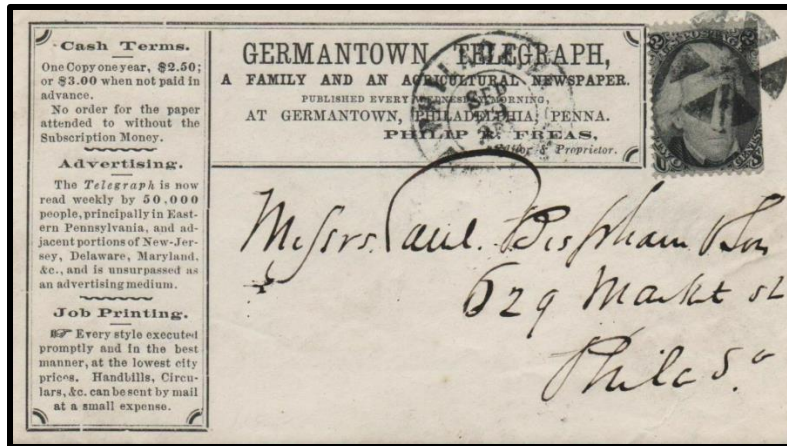 Cash Terms.
One Copy one year, $2.50;
or $3.00 when not paid in
advance.
No order for the paper
attended to without the
Subscription Money.
Advertising.
The Telegraph is now
read weekly by 50,000
people, principally in East-
ern Pennsylvania, and ad-
jacent portions of New-Jer-
sey, Delaware, Maryland,
&c., and is unsurpassed as
an advertising medium.
Job Printing.
☞ Every style executed
promptly and in the best
manner, at the lowest city
prices. Handbills, Circu-
lars, &c. can be sent by mail
at a small expense.
GERMANTOWN TELEGRAPH,
A FAMILY AND AN AGRICULTURAL NEWSPAPER.
PUBLISHED EVERY WEDNESDAY MORNING,
AT GERMANTOWN, PHILADELPHIA, PENNA.
PHILIP R. FREAS,
Editor & Proprietor.
SEP
Messrs. Saml. Bispham & Son
629 Markt st
Philada